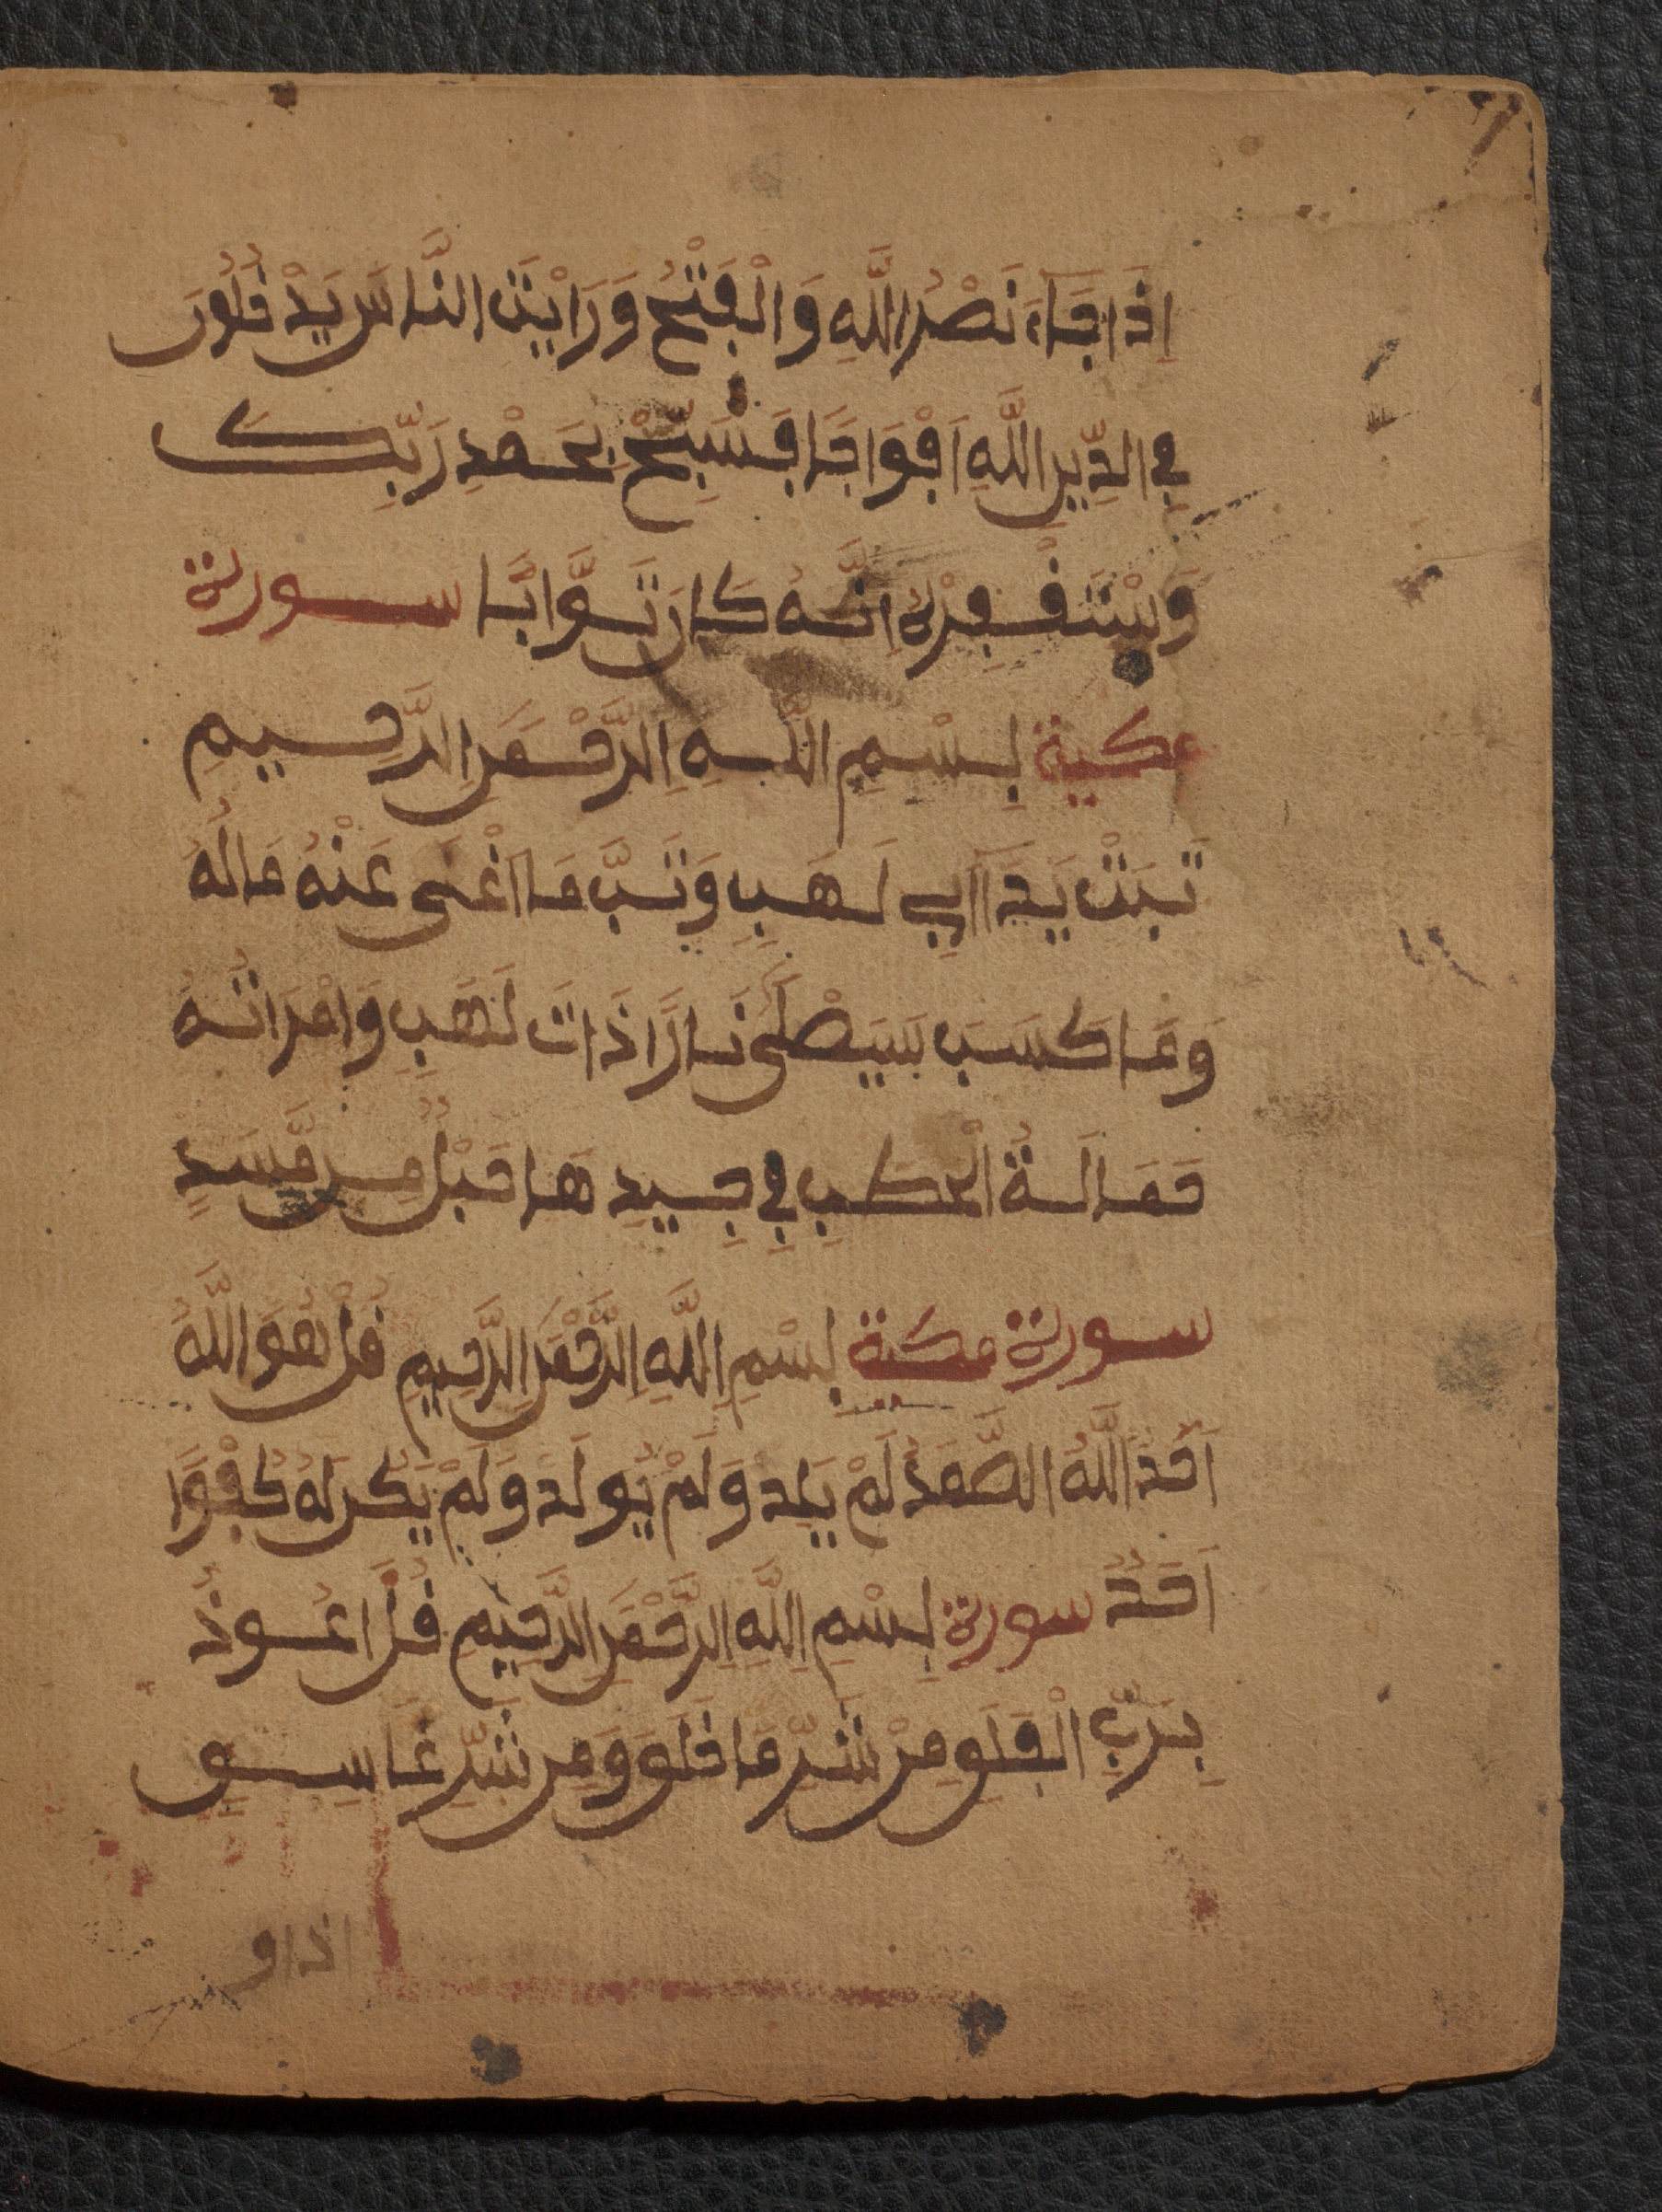 اِذَا جَاءَ نَصْرُ اللَّهِ وَالْفَتْحُ وَرَايْتَ النَّاسَ يَدْخُلُونَ
فِي الدِّينِ اللَّهِ اَفْوَاجَا فَسَبِّحْ بِحَمْدِ رَبِّكَ
وَسْتَغْفِرْهُ اِنَّهُ كَانَ تَوَّابَّا سورة
مكية بِسْمِ اللَّهِ الرَّحْمَنِ الرَّحِيمِ
تَبَتْ يَدَآ اَبِي لَهَبٍ وَتَبَّ مَا اَغْنَى عَنْهُ مَالُهُ
وَمَا كَسَبَ سَيَصْلَى نَارًا ذَاتَ لَهَبٍ وَامْرَاتُهُ
حَمَالَةُ الْحَطَبِ فِي جِيدِهَا حَبْلٌ مِن مَّسَدٍ
سورة مكية بِسْمِ اللَّهِ الرَّحْمَنِ الرَّحِيمِ قُلْ هُوَ اللَّهُ
اَحَدٌ اللَّهُ الصَّمَدُ لَمْ يَلِدْ وَلَمْ يُولَدْ وَلَمْ يَكُن لَهُ كُفْوًا
اَحَدٌ سورة بِسْمِ اللَّهِ الرَّحْمَنِ الرَّحِيمِ قُلَ اعُوذُ
بِرَبِّ الْفَلَقِ مِنْ شَرِّ مَا خَلَقَ وَمِن شَرِّ غَاسِقٍ
اذا و